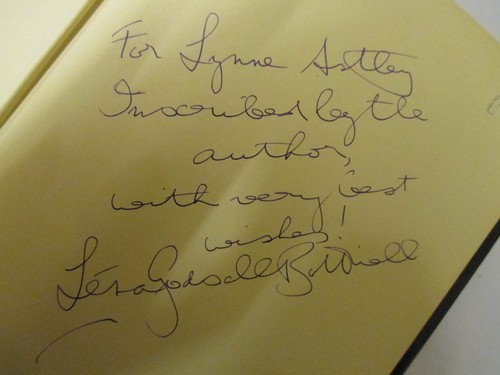 For Lynne Astley
Inscribed by the
author,
with very best
wishes!
Léna Godsall Bottriell